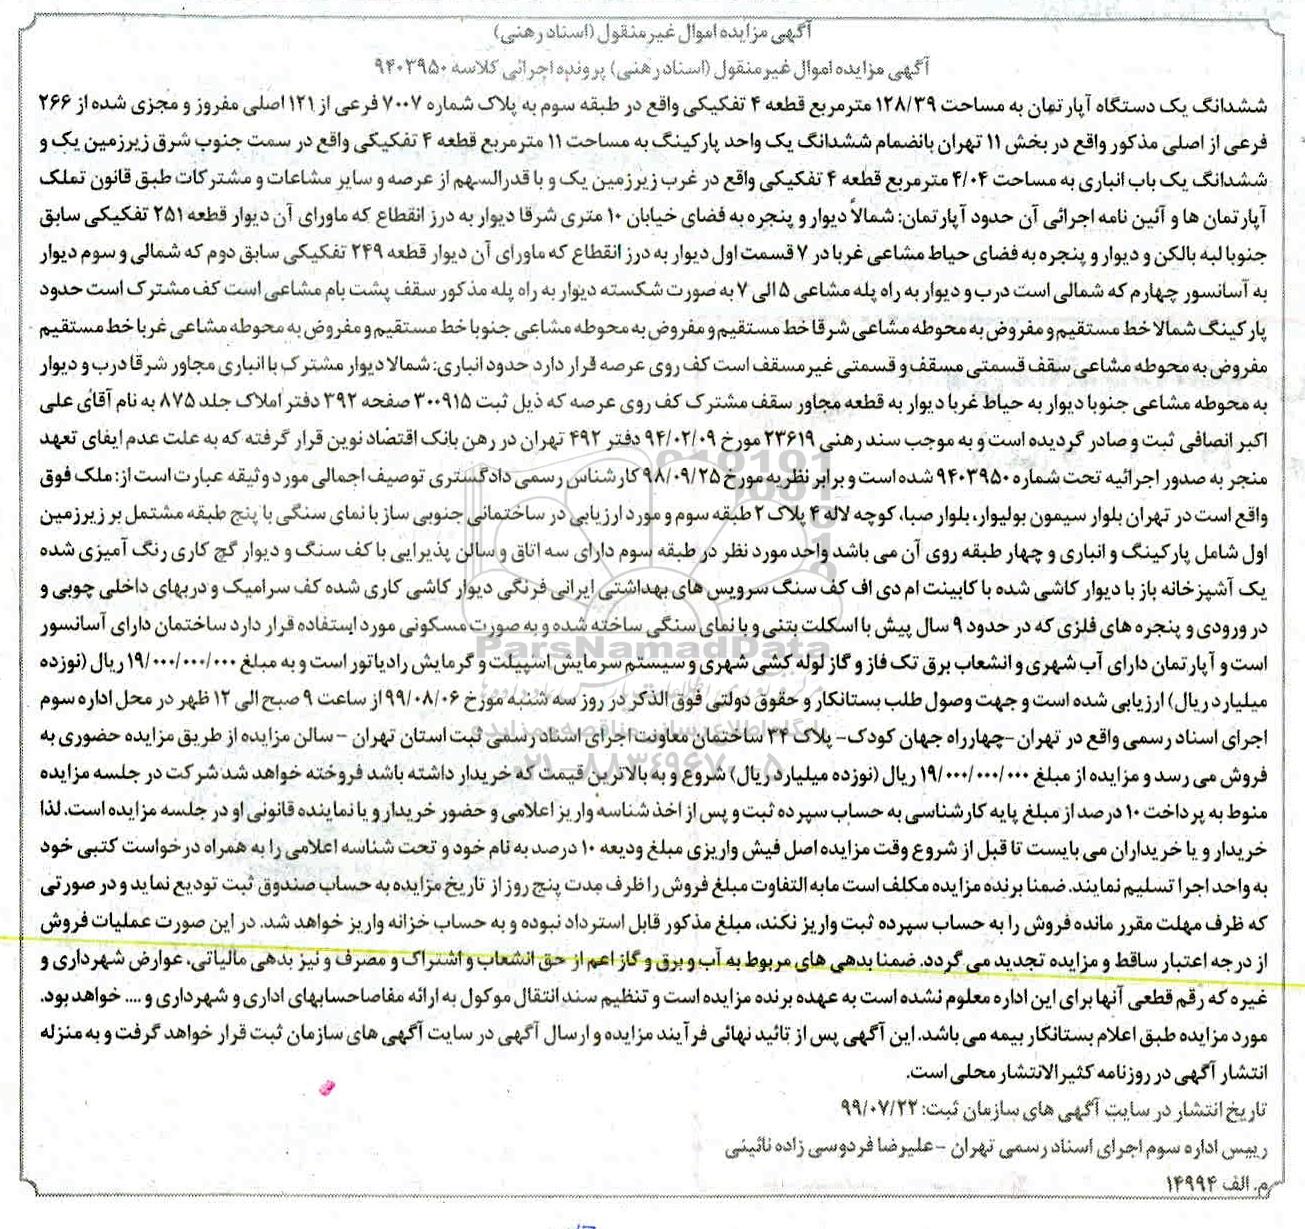 آگهی مزایده اموال غیر منقول (اسناد رهنی)
آگهی مزایده اموال غیر منقول (اسناد رهنی) پرونده اجرائی کلاسه ۹۴۰۳۹۵۰
ششدانگ یک دستگاه آپارتمان به مساحت ۱۲۸/۳۹ مترمربع قطعه ۴ تفکیکی واقع در طبقه سوم به پلاک شماره ۷۰۰۷ فرعی از ۱۲۱ اصلی مفروز و مجزی شده از ۲۶۶
فرعی از اصلی مذکور واقع در بخش ۱۱ تهران بانضمام ششدانگ یک واحد پارکینگ به مساحت ۱۱ مترمربع قطعه ۴ تفکیکی واقع در سمت جنوب شرق زیرزمین یک و
ششدانگ یک باب انباری به مساحت ۴/۰۴ مترمربع قطعه ۴ تفکیکی واقع در غرب زیرزمین یک و با قدرالسهم از عرصه و سایر مشاعات و مشترکات طبق قانون تملک
آپارتمان ها و آئین نامه اجرائی آن حدود آپارتمان: شمالاً دیوار و پنجره به فضای خیابان ۱۰ متری شرقا دیوار به درز انقطاع که ماورای آن دیوار قطعه ۲۵۱ تفکیکی سابق
جنوبا لبه بالکن و دیوار و پنجره به فضای حیاط مشاعی غربا در ۷ قسمت اول دیوار به درز انقطاع که ماورای آن دیوار قطعه ۲۴۹ تفکیکی سابق دوم که شمالی و سوم دیوار
به آسانسور چهارم که شمالی است درب و دیوار به راه پله مشاعی ۵ الی ۷ به صورت شکسته دیوار به راه پله مذکور سقف پشت بام مشاعی است کف مشترک است حدود
پارکینگ شمالا خط مستقیم و مفروض به محوطه مشاعی شرقا خط مستقیم و مفروض به محوطه مشاعی جنوبا خط مستقیم و مفروض به محوطه مشاعی غربا خط مستقیم
مفروض به محوطه مشاعی سقف قسمتی مسقف و قسمتی غیرمسقف است کف روی عرصه قرار دارد حدود انباری: شمالا دیوار مشترک با انباری مجاور شرقا درب و دیوار
به محوطه مشاعی جنوبا دیوار به حیاط غربا دیوار به قطعه مجاور سقف مشترک کف روی عرصه که ذیل ثبت ۳۰۰۹۱۵ صفحه ۳۹۲ دفتر املاک جلد ۸۷۵ به نام آقای علی
اکبر انصافی ثبت و صادر گردیده است و به موجب سند رهنی ۲۳۶۱۹ مورخ ۹۴/۰۲/۰۹ دفتر ۴۹۲ تهران در رهن بانک اقتضاد نوین قرار گرفته که به علت عدم ایفای تعهد
منجر به صدور اجرائیه تحت شماره ۹۴۰۳۹۵۰ شده است و برابر نظریه مورخ ۹۸/۰۹/۲۵ کارشناس رسمی دادگستری توصیف اجمالی مورد وثیقه عبارت است از: ملک فوق
واقع است در تهران بلوار سیمون بولیوار، بلوار صبا، کوچه لاله ۴ پلاک ۲ طبقه سوم و مورد ارزیابی در ساختمانی جنوبی ساز با نمای سنگی با پنج طبقه مشتمل بر زیرزمین
اول شامل پارکینگ و انباری و چهار طبقه روی آن می باشد واحد مورد نظر در طبقه سوم دارای سه اتاق و سالن پذیرایی با کف سنگ و دیوار گچ کاری رنگ آمیزی شده
یک آشپزخانه باز با دیوار کاشی شده با کابینت ام دی اف کف سنگ سرویس های بهداشتی ایرانی فرنگی دیوار کاشی کاری شده کف سرامیک و دربهای داخلی چوبی و
در ورودی و پنجره های فلزی که در حدود ۹ سال پیش با اسکلت بتنی و با نمای سنگی ساخته شده و به صورت مسکونی مورد استفاده قرار دارد ساختمان دارای آسانسور
است و آپارتمان دارای آب شهری و انشعاب برق تک فاز و گاز لوله کشی شهری و سیستم سرمایش اسپیلت و گرمایش رادیاتور است و به مبلغ ۱۹/۰۰۰/۰۰۰/۰۰۰ ریال (نوزده
میلیارد ریال) ارزیابی شده است و جهت وصول طلب بستانکار و حقوق دولتی فوق الذکر در روز سه شنبه مورخ ۹۹/۰۸/۰۶ از ساعت ۹ صبح الی ۱۲ ظهر در محل اداره سوم
اجرای اسناد رسمی واقع در تهران -چهارراه جهان کودک- پلاک ۳۴ ساختمان معاونت اجرای اسناد رسمی ثبت استان تهران - سالن مزایده از طریق مزایده حضوری به
فروش می رسد و مزایده از مبلغ ۱۹/۰۰۰/۰۰۰/۰۰۰ ریال (نوزده میلیارد ریال) شروع و به بالاترین قیمت که خریدار داشته باشد فروخته خواهد شد شرکت در جلسه مزایده
منوط به پرداخت ۱۰ درصد از مبلغ پایه کارشناسی به حساب سپرده ثبت و پس از اخذ شناسه واریز اعلامی و حضور خریدار و یا نماینده قانونی او در جلسه مزایده است. لذا
خریدار و یا خریداران می بایست تا قبل از شروع وقت مزایده اصل فیش واریزی مبلغ ودیعه ۱۰ درصد به نام خود و تحت شناسه اعلامی را به همراه درخواست کتبی خود
به واحد اجرا تسلیم نمایند. ضمنا برنده مزایده مکلف است مابه التفاوت مبلغ فروش را ظرف مدت پنج روز از تاریخ مزایده به حساب صندوق ثبت تودیع نماید و در صورتی
که ظرف مهلت مقرر مانده فروش را به حساب سپرده ثبت واریز نکند، مبلغ مذکور قابل استرداد نبوده و به حساب خزانه واریز خواهد شد. در این صورت عملیات فروش
از درجه اعتبار ساقط و مزایده تجدید می گردد. ضمنا بدهی های مربوط به آب و برق و گاز اعم از حق انشعاب و اشتراک و مصرف و نیز بدهی مالیاتی، عوارض شهرداری و
غیره که رقم قطعی آنها برای این اداره معلوم نشده است به عهده برنده مزایده است و تنظیم سند انتقال موکول به ارائه مفاصاحسابهای اداری و شهرداری و .... خواهد بود.
مورد مزایده طبق اعلام بستانکار بیمه می باشد. این آگهی پس از تائید نهائی فرآیند مزایده و ارسال آگهی در سایت آگهی های سازمان ثبت قرار خواهد گرفت و به منزله
انتشار آگهی در روزنامه کثیرالانتشار محلی است.
تاریخ انتشار در سایت آگهی های سازمان ثبت: ۹۹/۰۷/۲۲
رییس اداره سوم اجرای اسناد رسمی تهران - علیرضا فردوسی زاده نائینی
م. الف ۱۴۹۹۴
ParsNamadData
۰۲۱-۸۸۳۴۹۶۷۰-۵